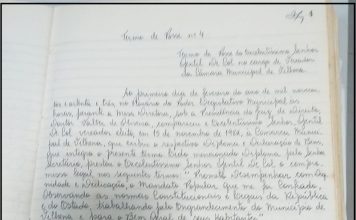 Termo de Posse nº 4
Termo de Posse do Excelentíssimo Senhor
Gentil De Col no cargo de Vereador
da Câmara Municipal de Vilhena.
Ao primeiro dia de fevereiro do ano de mil novecen
tos e oitenta e três no Plenário do Poder Legislativo Municipal de
perante a Mesa Diretora, sob a Presidência do de Direito,
Doutor de Oliveira, compareceu o Excelentíssimo Senhor Gentil
De Col vereador eleito, em 15 de novembro de 1982, à Câmara Munici
pal de Vilhena, que exibiu o respectivo Diploma e Declaração de Bens
que integra o presente termo.
Secretário, prestou o Excelentíssimo Senhor Gentil De Col o compro
misso legal nos seguintes termos: " Prometo Desempenhar com Dig
nidade e Dedicação, o Mandato Popular que me foi Confiado,
Observando as normas Constitucionais e Legais da República
e do Estado, trabalhando pelo Engrandecimento do Município de
Vilhena e para o Bem Geral de seus habitantes